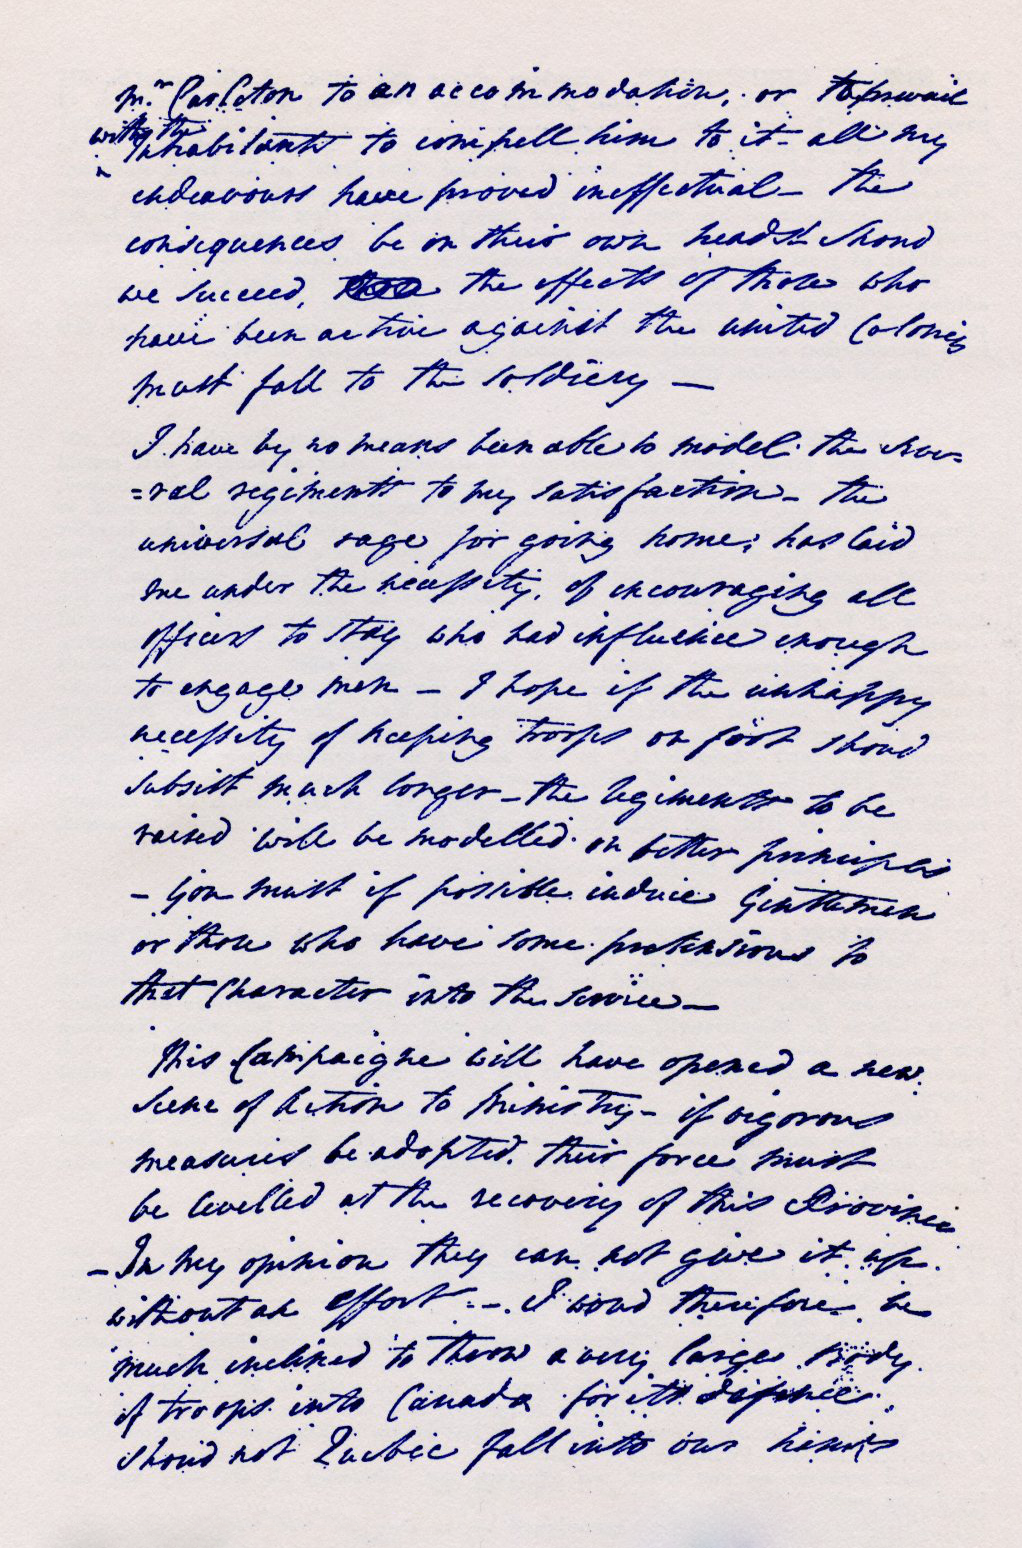 Mr. Carleton to an accommodation, or to prevail
with the
Inhabitants to compell him to it - all my
endeavours have proved ineffectual - the
consequences be on their own heads shoud
we succeed, the effects of those who
have been active against the united Colonies
must fall to the soldiery —
I have by no means been able to model the seve-
=ral regiments to my satisfaction - the
universal rage for going home, has laid
me under the necessity, of encouraging all
officers to stay who had influence enough
to engage men - I hope if the unhappy
necessity of keeping troops on foot shoud
subsist much longer - the regiments to be
raised will be modelled on better principles
- You must if possible induce Gentlemen
or those who have some pretensions to
that Character into the service —
This Campaigne will have opened a new
scene of Action to Ministry - if vigorous
measures be adopted, their force must
be levelled at the recovery of this Province
- In my opinion they can not give it up
without an effort - . I woud therefore be
much inclined to throw a very large Body
of troops into Canada for its defence,
shoud not Quebec fall into our hands